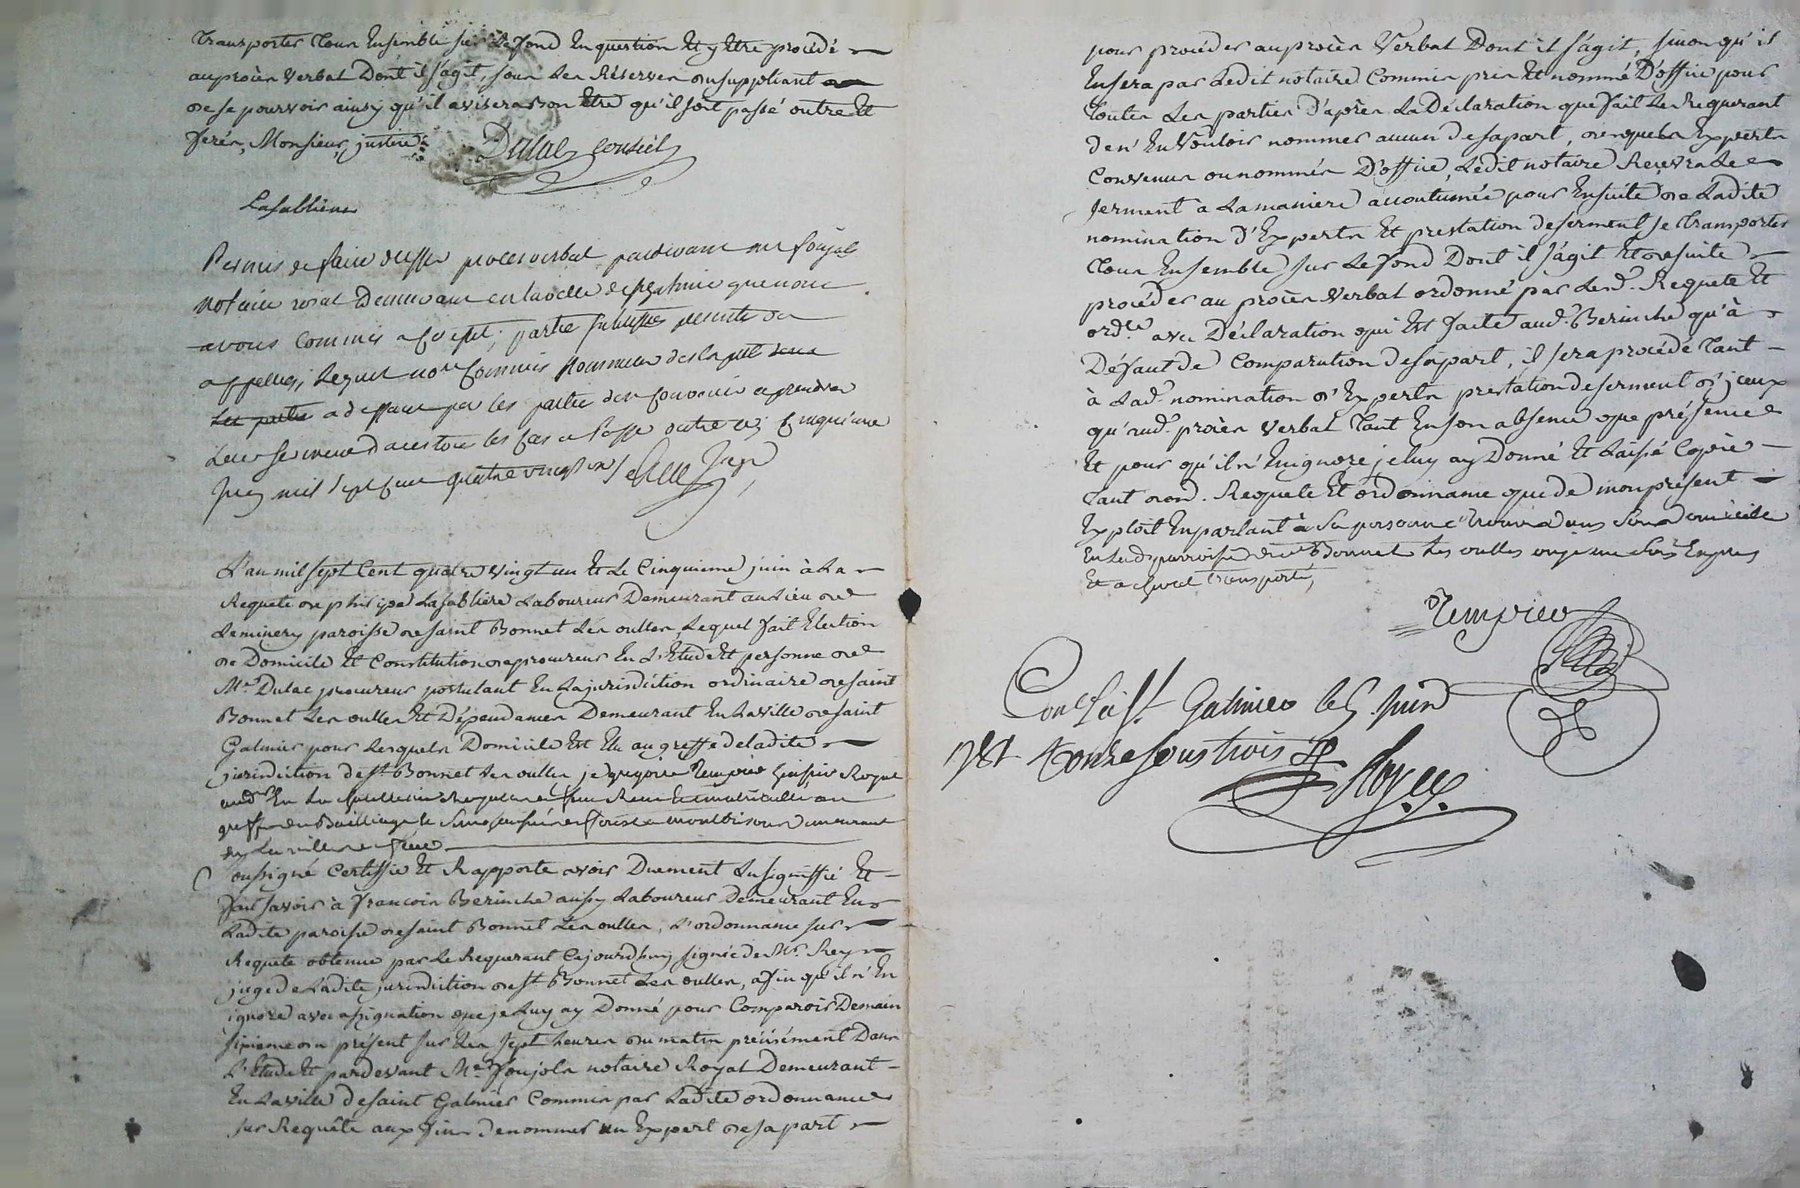 transporter tous Ensemble sur Le fond En question Et y Etre procédé
au procès Verbal Dont il s'agit, sous Les Réserves du suppliant
de se pourvoir ainsy qu'il avisera bon Etre qu'il soit passé outre Et
ferés, Monsieur, justice
Dulac conseil
Lasablière
Permis de faire dresser proces verbal pardevant me foujols
notaire roial Demeurant en la ville de st galmier que nous
avons commis a cet effet, partie presente ou
appellée, lequel no.re commis nommera des experts
les parties a deffaut par les parties d'en convenir a prendre
leur serment dans tous les cas a passé outre ce cinquieme
juin mil sept cent quatre vingt un / Rey Juge
L'an mil sept Cent quatre vingt un Et Le Cinquieme juin à La
Requete de philipe Lasablière Laboureur Demeurant au Lieu de
Leminery paroisse de saint Bonnet Les oulles, Lequel fait Election
de Domicile Et Constitution de procureur En L'Etude Et personne de
Me. Dulac procureur postulant En La jurisdiction ordinaire de saint
Bonnet Les oulles Et Dépendances Demeurant En La ville de saint
Galmier pour Lesquels Domicile Est Elu au greffe de ladite
jurisdiction de st. Bonnet Les oulles je gregoire Tempier huissier Royal
greffe du Bailliage de forest a montbrison demeurant
soussigné Certiffie Et Rapporte avoir Duement Insignifié Et
fait savoir à françois Beriche aussy Laboureur Demeurant En
Ladite paroisse de saint Bonnet Les oulles, L'ordonnance sur
Requete obtenue par Le Requerant Cejourdhuy signée de Mr. Rey
juge de Ladite jurisdiction de st Bonnet Les oulles, afin qu'il n'En
ignore avec assignation que je Luy ay Donné pour Comparoir Demain
sixieme du présent sur Les sept heures du matin précisément Dans
L'Etude Et pardevant Me. foujols notaire Royal Demeurant
En La ville de saint Galmier Commis par Ladite ordonnance
sur Requête aux fins de nommer un Expert de sa part
pour proceder au procès Verbal Dont il s'agit, sinon qu'il
En sera par Ledit notaire Commis pris Et nommé D'office pour
toutes Les parties D'après La Déclaration que fait Le Requerant
de n'En Vouloir nommer aucun de sa part, desquels Experts
Convenus ou nommés D'office, Ledit notaire Recevra Le
serment a La maniere accoutumée pour Ensuite de Ladite
nomination d'Experts Et prestation de serment se transporter
tous Ensemble sur Le fond Dont il s'agit Et desuite
proceder au procès Verbal ordonné par Lesd. Requete Et
ordce. avec Déclaration qui Est faite aud. Beriche qu'à
Défaut de Comparution de sa part, il sera procédé tant
à Lad. nomination d'Experts prestation de serment d'iceux
qu'aud. procès Verbal tant En son absence que présence
Et pour qu'il n'En ignore, je Luy ay Donné Et Laissé Copie
tant desd. Requete Et ordonnance que de mon présent
Exploit En parlant à sa personne trouvé dans son domicile
En Lad. parroisse de st Bonnet Les oulles ou je me suis Exprès
Et a cheval transporté,
Tempier
Con.lé à St. Galmier le 5 juin
1781 sous trois s
Royer